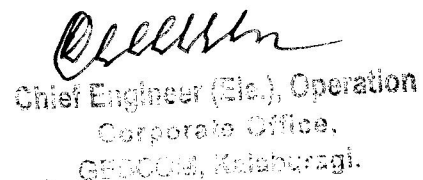 Chief Engineer (Ele.), Operation
Corporate Office.
GESCOM, Kalaburagi.